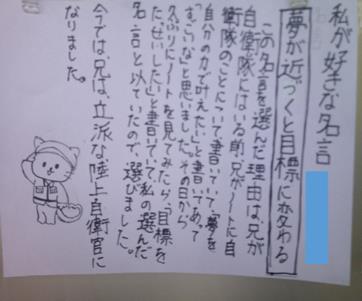 私が好きな名言
夢が近づくと目標に変わる
この名言を選んだ理由は、兄が
自衛隊にはいる前、兄がノートに自
衛隊のことについて書いていて、「夢を
自分の力で叶えたい」と書いてあって
「すごいな」と思いました。その日から
久ぶりにノートを見てみたら、「目標を
たっせいしたい」と書いていて、私の選んだ
名言と似ていたので、選びました。
今では兄は、立派な陸上自衛官に
なりました。